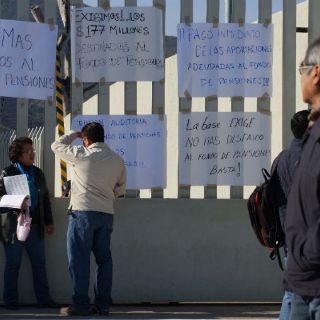 MAS
OS AL
PENSIONES
EXIGIMOS!! LOS
$ 177 MILLONES
DESTINADOS AL
FONDO DE PENSIONES
PAGO INMEDIATO
DE LAS APORTACIONES
ADEUDADAS AL FONDO
DE PENSIONES!!!
AUDITORIA
DE PENSIONES
La base EXIGE
NO MAS DESFALCO
AL FONDO DE PENSIONES
BASTA!